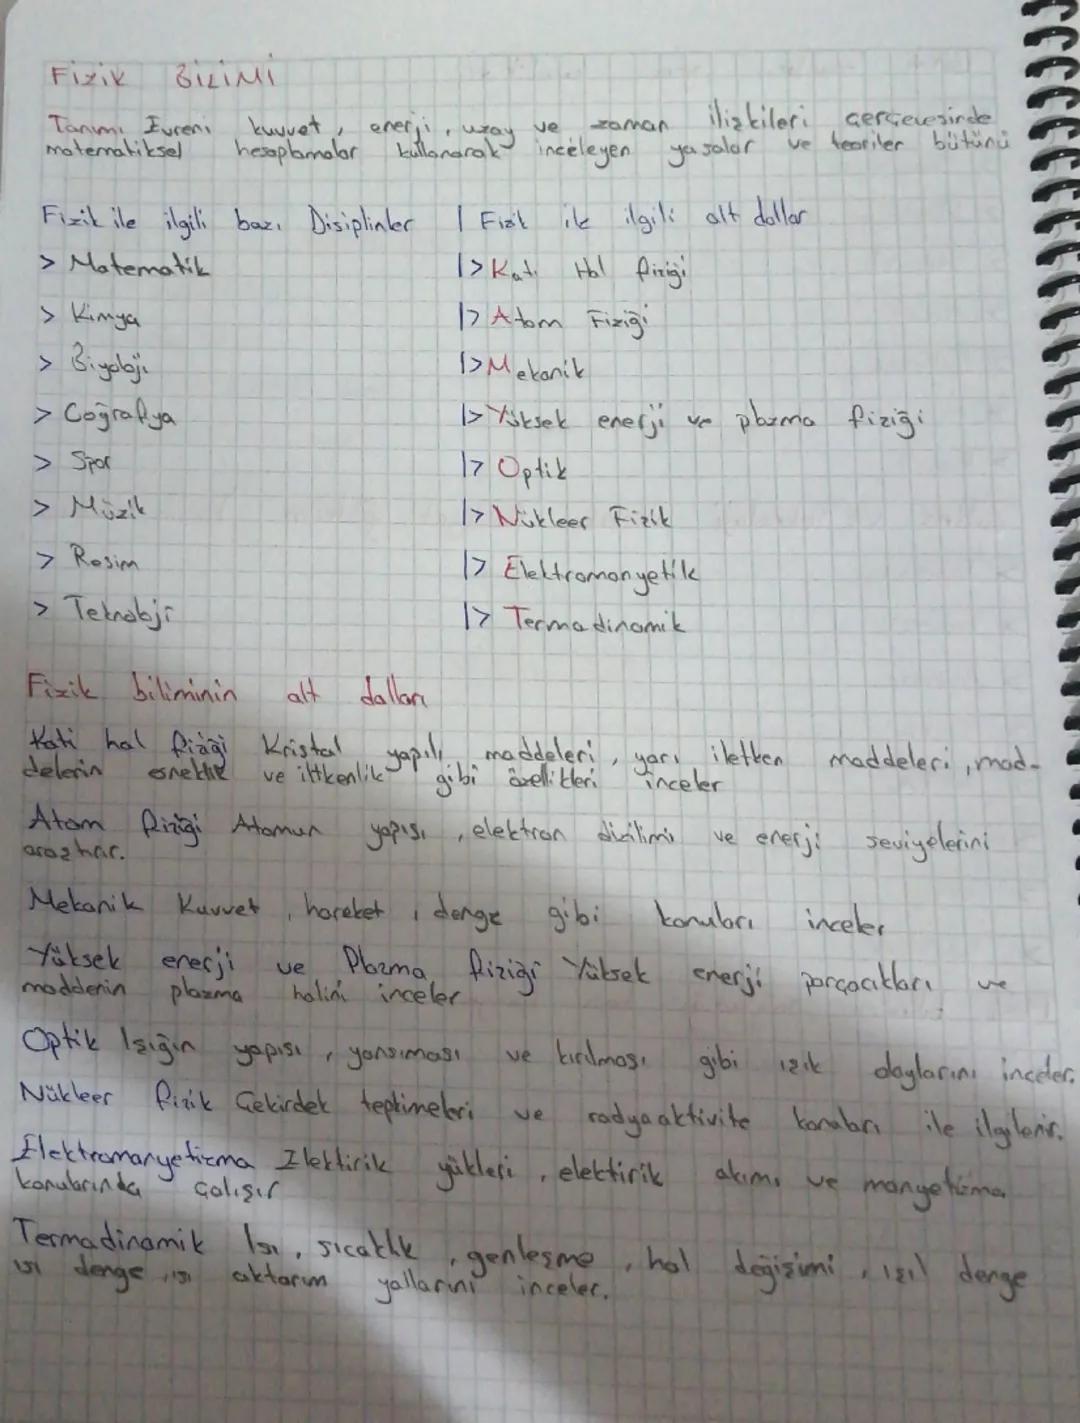 Fizik BİLİMİ
Tanımı Evreni kuvvet, enerji, uzay ve zaman ilişkileri çerçevesinde
matematiksel hesaplamalar kullanarak inceleyen yasalar ve teoriler bütünü
Fizik ile ilgili bazı Disiplinler | Fizik ile ilgili alt dallar
> Matematik |> Katı Hal fiziği
> Kimya |> Atom Fiziği
> Biyoloji |> Mekanik
> Coğrafya |> Yüksek enerji ve plazma fiziği
> Spor |> Optik
> Müzik |> Nükleer Fizik
> Resim |> Elektromanyetik
> Teknoloji |> Termadinamik
Fizik biliminin alt dalları
Katı hal fiziği Kristal yapılı maddeleri, yarı iletken maddeleri, mad-
delerin esneklik ve iltkenlik gibi özellikleri inceler
Atom fiziği Atomun yapısı, elektron dizilimi ve enerji seviyelerini
araştırır.
Mekanik Kuvvet, hareket, denge gibi konuları inceler
Yüksek enerji ve Plazma fiziği Yüksek enerji parçacıkları ve
maddenin plazma halini inceler
Optik Işığın yapısı, yansıması ve kırılması gibi ışık olaylarını inceler.
Nükleer fizik Çekirdek tepkimeleri ve radyoaktivite konuları ile ilgilenir.
Elektromanyetizma Elektirik yükleri, elektirik akımı ve manyetizma
konularında çalışır
Termadinamik Isı, sıcaklık, genleşme, hal değişimi, ısıl denge
ısı denge, ısı aktarım yollarını inceler.